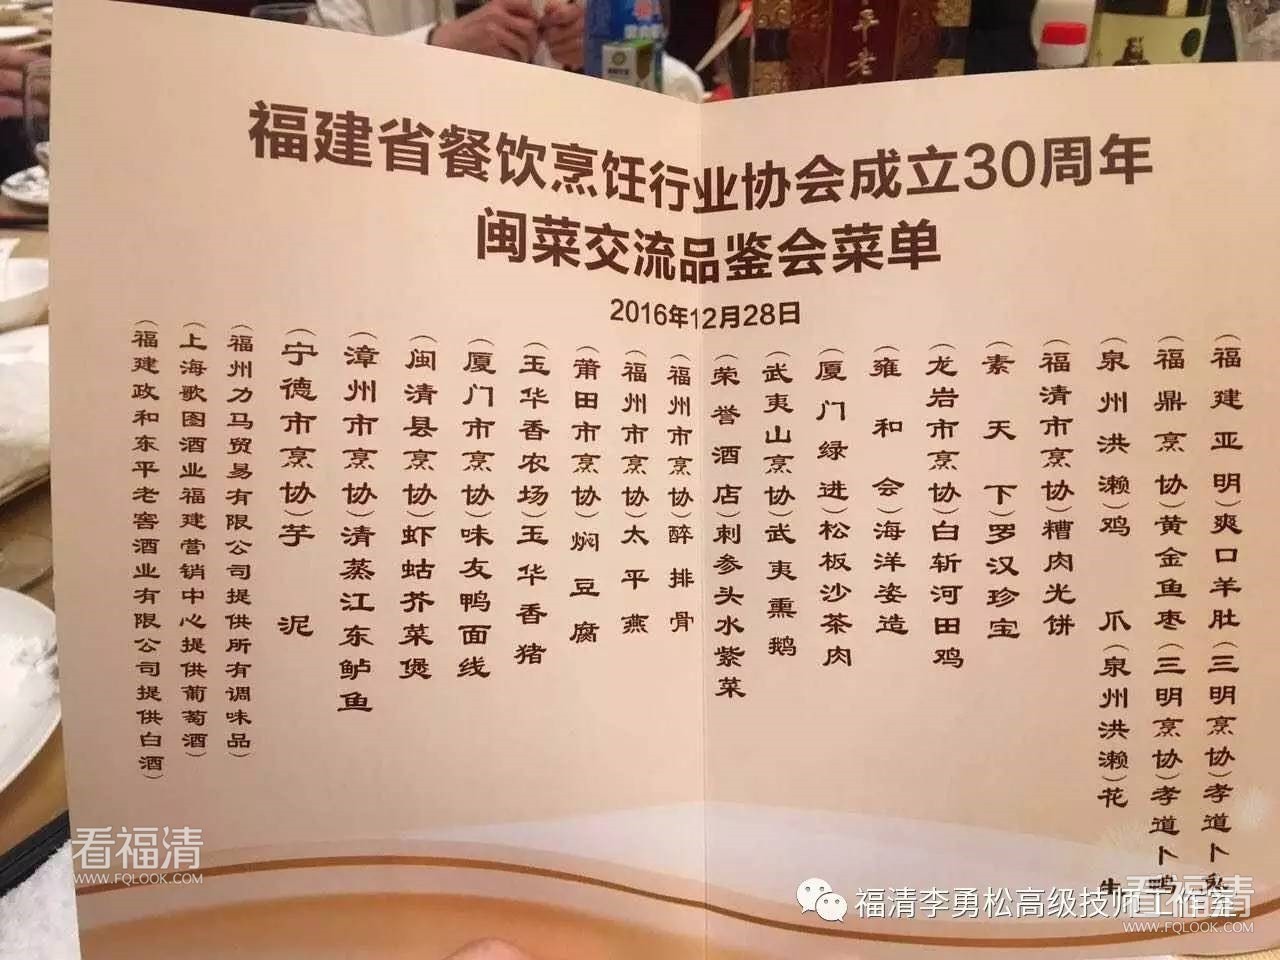 福建省餐饮烹饪行业协会成立30周年
闽菜交流品鉴会菜单
2016年12月28日
（福建亚明）爽口羊肚（三明烹协）孝道卜
（福鼎烹协）黄金鱼枣（三明烹协）孝道卜鸭
（泉州洪濑）鸡爪（泉州洪濑）花
（福清市烹协）糟肉光饼
（素天下）罗汉珍宝
（龙岩市烹协）白斩河田鸡
（雍和会）海洋姿造
（厦门绿进）松板沙茶肉
（武夷山烹协）武夷熏鹅
（荣誉酒店）刺参头水紫菜
（福州市烹协）醉排骨
（福州市烹协）太平燕
（莆田市烹协）焖豆腐
（玉华香农场）玉华香猪
（厦门市烹协）味友鸭面线
（闽清县烹协）虾蛄芥菜煲
（漳州市烹协）清蒸江东鲈鱼
（宁德市烹协）芋泥
（福州力马贸易有限公司提供所有调味品）
（上海歌图酒业福建营销中心提供葡萄酒）
（福建政和东平老窖酒业有限公司提供白酒）
平老
看福清
WWW.FQLOOK.COM
福清李勇松高级技师工作室
看福清
WWW.FQLOOK.COM